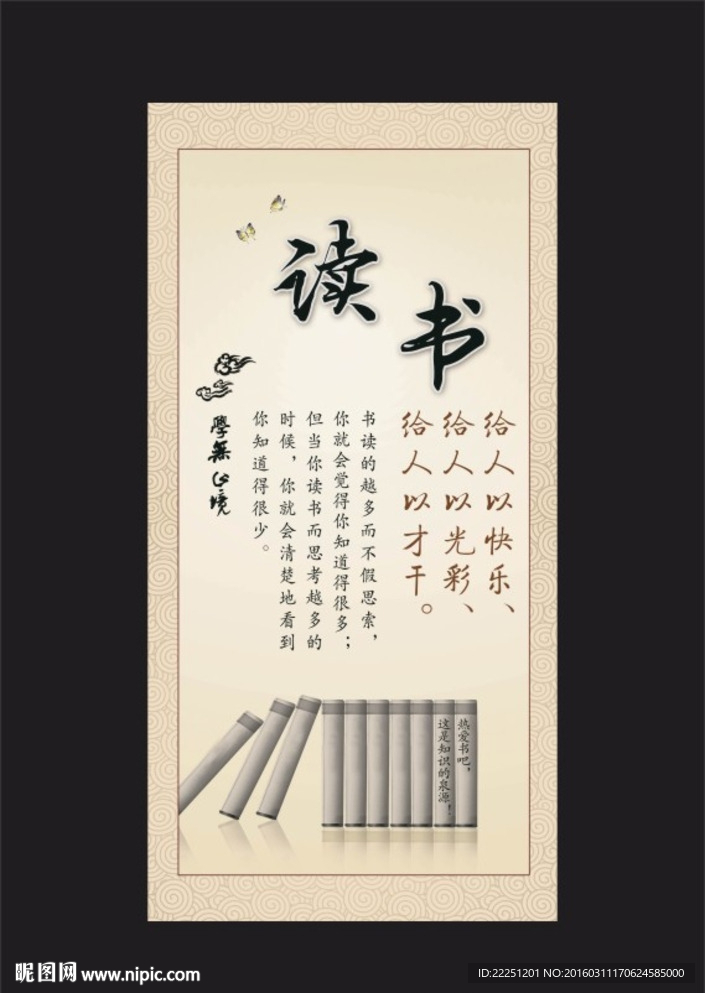 读书
给人以快乐、
给人以光彩、
给人以才干。
书读的越多而不假思索，
你就会觉得你知道得很多；
但当你读书而思考越多的
时候，你就会清楚地看到
你知道得很少。
學無止境
热爱书吧，
这是知识的泉源！
昵图网 www.nipic.com
ID:22251201 NO:20160311170624585000